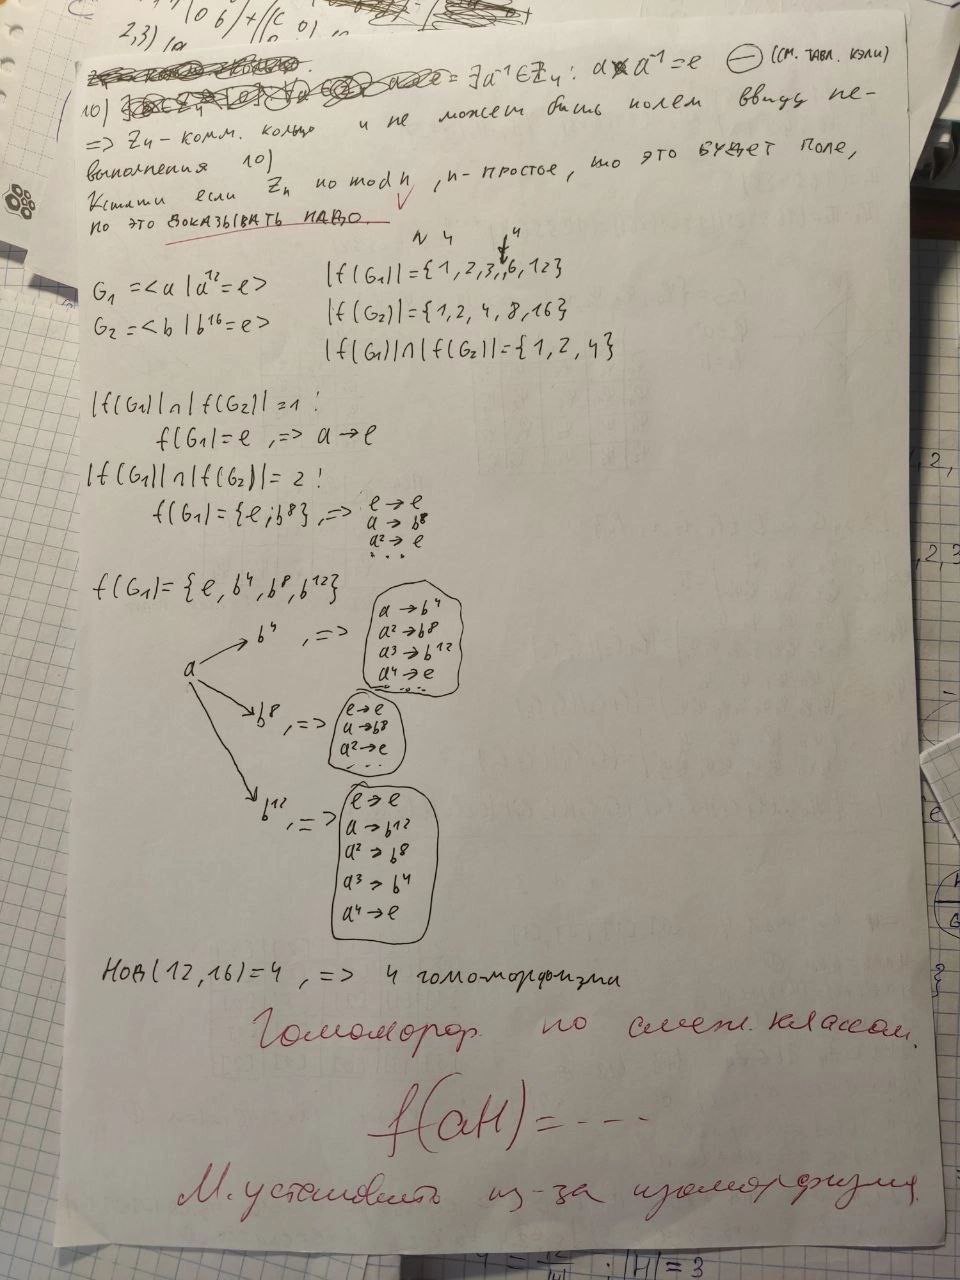 2,3)
10) = ∃a⁻¹∈Z₄: a × a⁻¹ = e ⊖ (см. табл. кэли)
=> Z₄ - комм. кольцо и не может быть полем ввиду не-
выполнения 10)
Кстати если Zₙ по mod n, n - простое, то это будет поле,
но это ДОКАЗЫВАТЬ НАДО.
N 4
G₁ = <a | a¹² = e>
|f(G₁)| = {1, 2, 3, 4, 6, 12}
G₂ = <b | b¹⁶ = e>
|f(G₂)| = {1, 2, 4, 8, 16}
|f(G₁)| ∩ |f(G₂)| = {1, 2, 4}
|f(G₁)| ∩ |f(G₂)| = 1:
f(G₁) = e, => a → e
|f(G₁)| ∩ |f(G₂)| = 2:
f(G₁) = {e; b⁸}, =>
e → e
a → b⁸
a² → e
...
f(G₁) = {e, b⁴, b⁸, b¹²}
a
b⁴, =>
a → b⁴
a² → b⁸
a³ → b¹²
a⁴ → e
...
b⁸, =>
e → e
a → b⁸
a² → e
...
b¹², =>
e → e
a → b¹²
a² → b⁸
a³ → b⁴
a⁴ → e
НОД(12, 16) = 4, => 4 гомоморфизма
Гомоморф. по смеж. классам.
f(aH) = ----
М. установить из-за изоморфизма
; |H| = 3